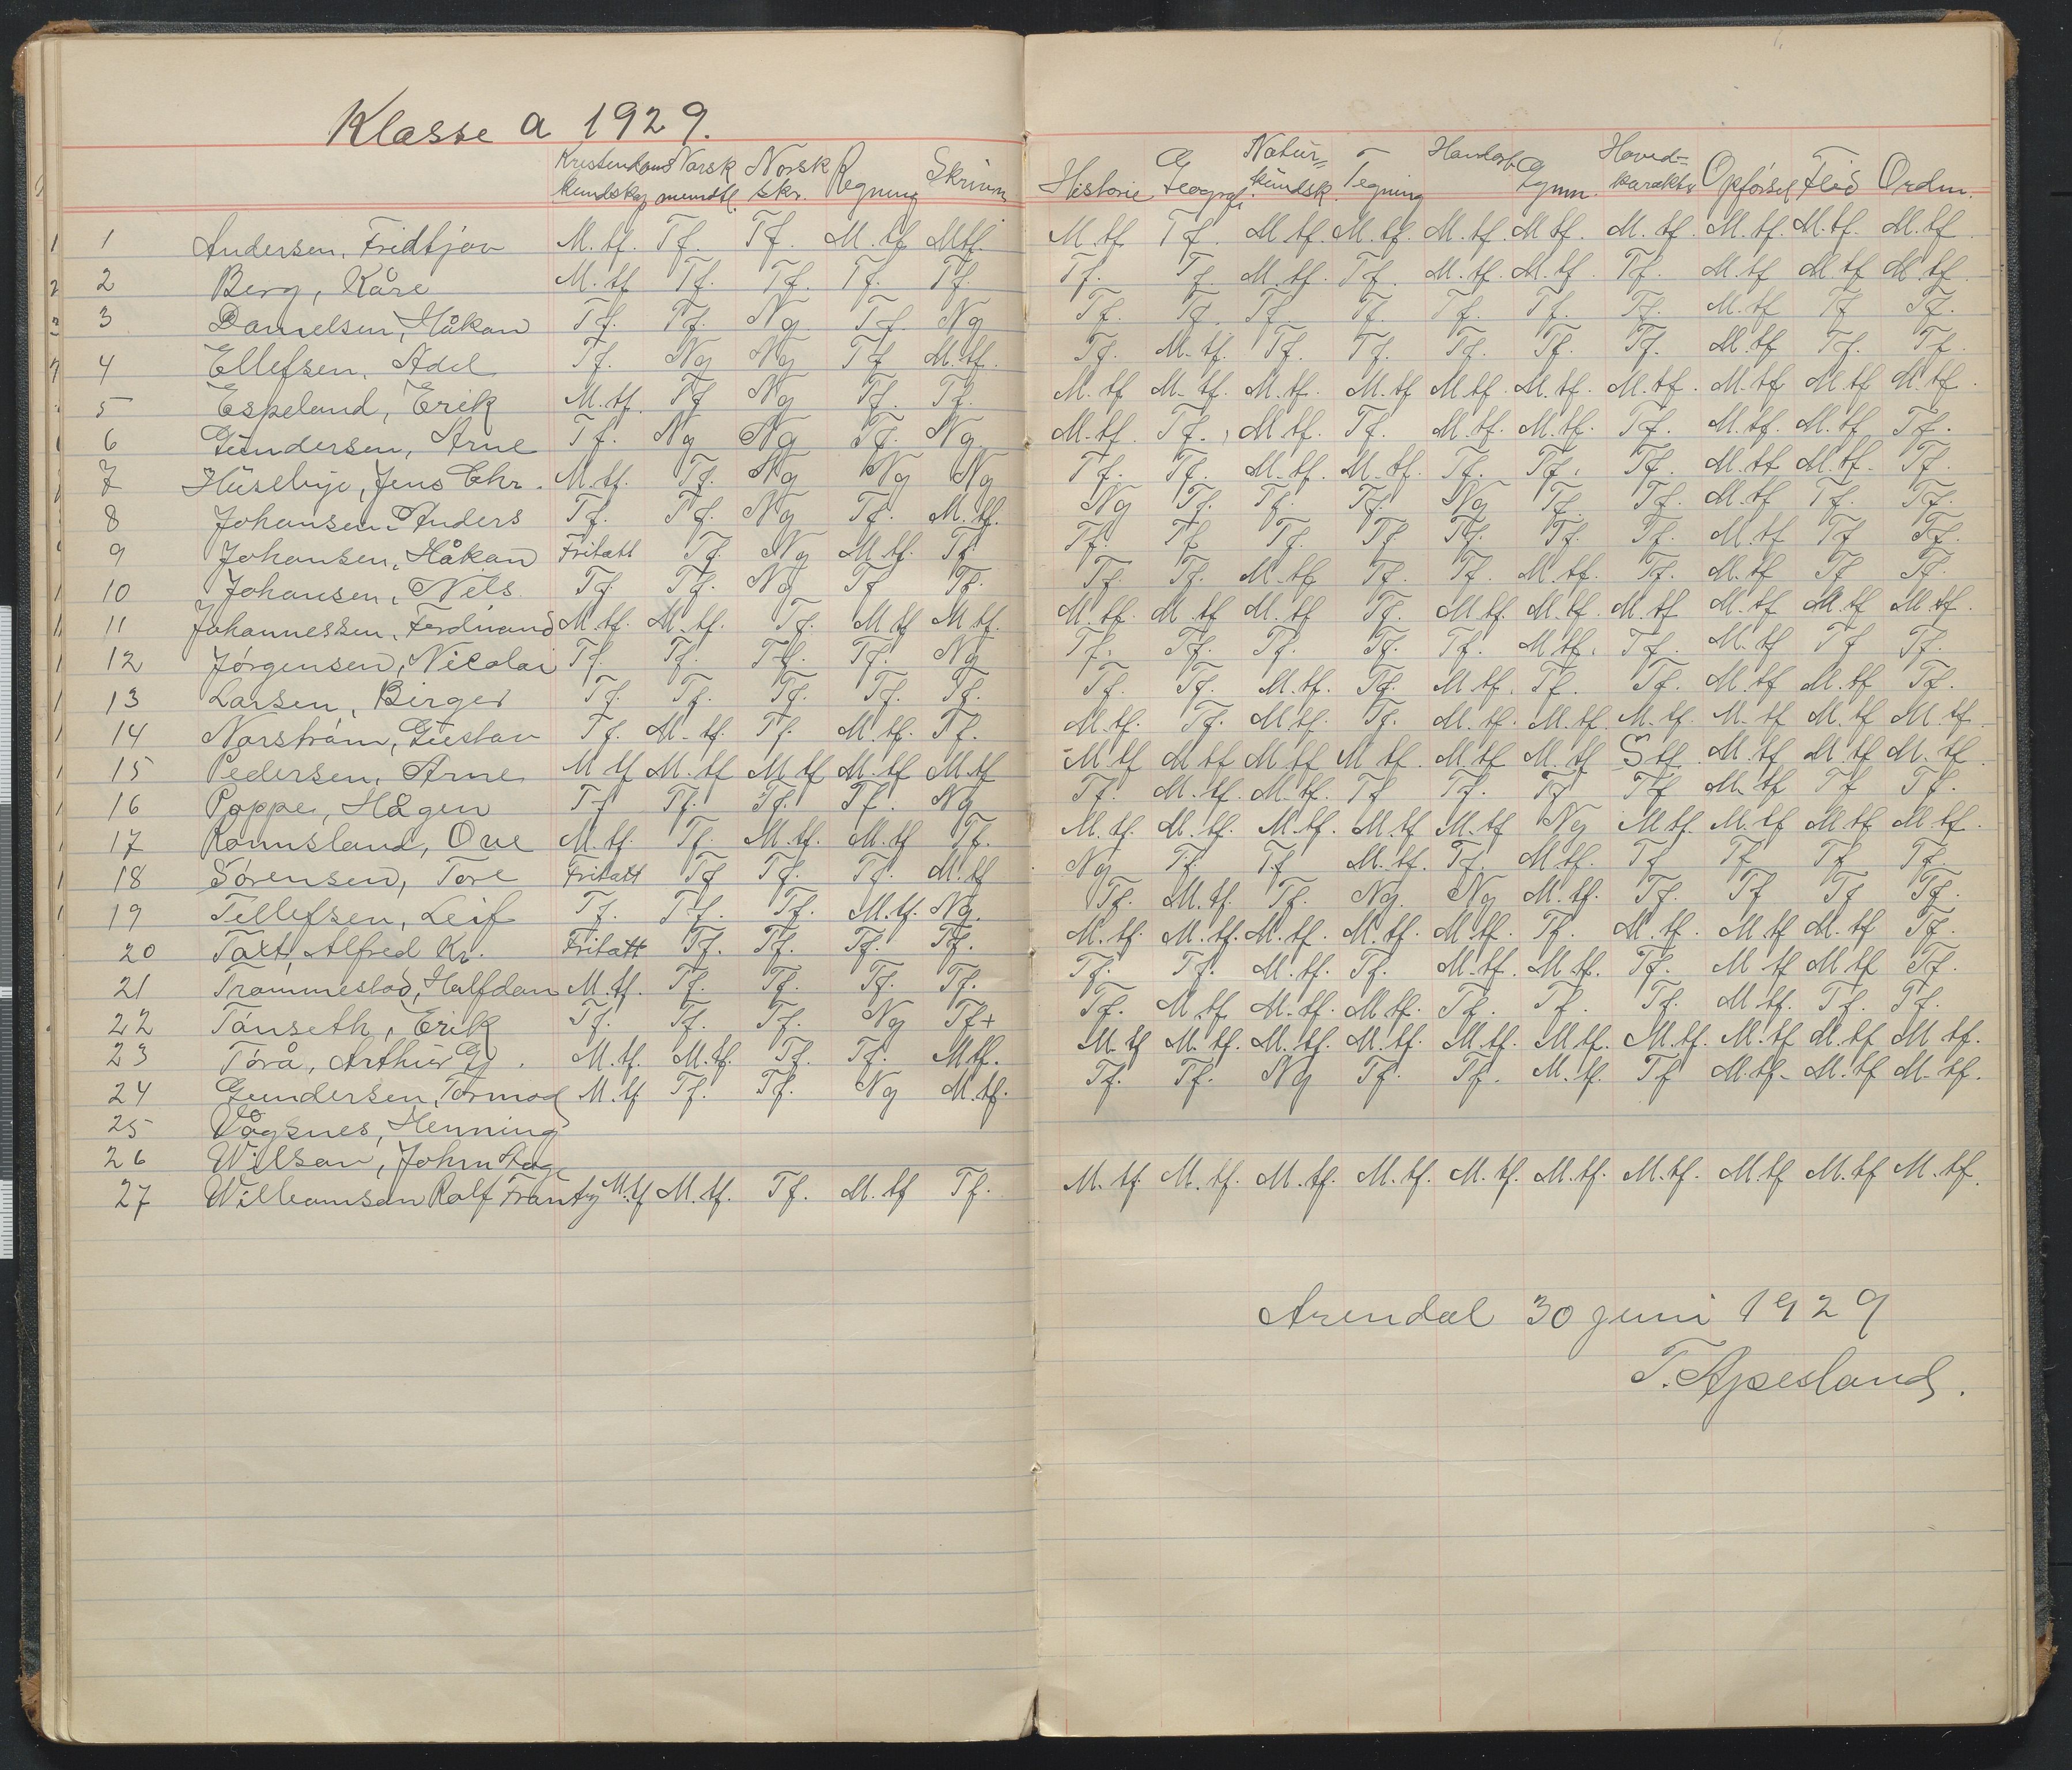 Klasse a 1929.
Kristendoms kundskap Norsk mundtl. Norsk skr. Regning Skrivn Historie Geografi Naturkundsk. Tegning Handarb. Gymn. Hovedkarakter Opførsel Flid Orden.
1 1 Andersen, Fridtjov M.tf. Tf. Tf. M.tf M.tf. M.tf Tf. M.tf. M.tf. M.tf. M.tf. M.tf. M.tf. M.tf. M.tf.
2 2 Berg, Kåre M.tf Tf. Tf. Tf. Tf. Tf. Tf. M.tf. Tf. M.tf. M.tf. Tf. M.tf M.tf M.tf
3 3 Danielsen, Håkon Tf. Tf. Ng. Tf. Ng Tf. Tf. Tf. Tf. Tf. Tf. Tf. M.tf Tf Tf.
4 4 Ellefsen, Adel Tf. Ng Ng Tf M.tf. Tf. M.tf. Tf. Tf. Tf. Tf. Tf. M.tf Tf. Tf.
5 Espeland, Erik M.tf. Tf Ng Tf. Tf. M.tf M.tf. M.tf. M.tf M.tf. M.tf. M.tf. M.tf M.tf M.tf.
6 Gundersen, Arne Tf. Ng Ng Tf. Ng. M.tf. Tf. M.tf. Tf. M.tf. M.tf. Tf. M.tf. M.tf. Tf.
7 Huseby, Jens Chr. M.tf. Tf. Ng Ng Ng Tf. Tf. M.tf. M.tf. Tf. Tf. Tf. M.tf M.tf. Tf.
8 Johansen, Anders Tf. Tf. Ng Tf. M.tf. Ng Tf. Tf. Tf. Ng Tf. Tf. M.tf Tf. Tf.
9 Johansen, Håkon Fritatt Tf. Ng M.tf. Tf. Tf. Tf. Tf. Tf Tf. Tf. Tf. M.tf Tf Tf.
10 Johansen, Nels Tf. Tf. Ng Tf Tf. Tf. Tf. M.tf Tf. Tf. M.tf. Tf. M.tf Tf Tf.
11 Johannessen, Ferdinand M.tf. M.tf. Tf. M.tf M.tf. M.tf. M.tf M.tf Tf. M.tf. M.tf. M.tf M.tf M.tf M.tf.
12 Jörgensen, Nicolai Tf. Tf. Tf. Tf. Ng Tf. Tf. Tf. Tf. Tf. M.tf. Tf. M.tf Tf Tf.
13 Larsen, Birger Tf. Tf. Tf. Tf. Tf. Tf. Tf. M.tf. Tf. M.tf. Tf. Tf. M.tf M.tf. Tf.
14 Norstrøm, Gustav Tf. M.tf. Tf. M.tf. Tf. M.tf. Tf. M.tf. Tf. M.tf. M.tf. M.tf. M.tf M.tf M.tf.
15 Pedersen, Arne M.tf M.tf M.tf M.tf M.tf M.tf M.tf M.tf M.tf. M.tf M.tf S.tf. M.tf M.tf M.tf.
16 Poppe, Hågen Tf Tf. Tf. Tf. Ng Tf. M.tf. M.tf. Tf Tf. Tf Tf M.tf Tf Tf.
17 Romsland, Ove M.tf. Tf. M.tf. M.tf Tf. M.tf. M.tf. M.tf. M.tf M.tf Ng M.tf. M.tf M.tf M.tf.
18 Sörensen, Tore Fritatt Tf Tf. Tf. M.tf Ng Tf. Tf M.tf. Tf. M.tf. Tf Tf Tf Tf.
19 Tellefsen, Leif Tf. Tf. Tf. M.tf. Ng. Tf. M.tf. Tf. Ng. Ng M.tf. Tf. Tf Tf Tf.
20 Taxt, Alfred Kr. Fritatt Tf. Tf. Tf. Tf. M.tf. M.tf. M.tf. M.tf. M.tf. Tf. M.tf. M.tf M.tf Tf.
21 Trommestad, Halfdan M.tf. Tf. Tf. Tf. Tf. Tf. Tf. M.tf. Tf. M.tf. M.tf. Tf. M.tf M.tf Tf.
22 Tönseth, Erik Tf. Tf. Tf. Ng Tf+ Tf. M.tf M.tf. M.tf. Tf. Tf. Tf. M.tf. Tf. Tf.
23 Torå, Arthur Gj. M.tf. M.tf. Tf. Tf. M.tf. M.tf M.tf. M.tf. M.tf. M.tf. M.tf. M.tf. M.tf M.tf M.tf.
24 Gundersen, Tormod M.tf. Tf. Tf. Ng M.tf. Tf. Tf. Ng Tf. Tf. M.tf. Tf M.tf. M.tf M.tf.
25 Vågsnes, Henning
26 Wilson, John Aage
27 Williamson Rolf Frantz M.tf M.tf. Tf. M.tf Tf. M.tf. M.tf. M.tf. M.tf. M.tf. M.tf. M.tf. M.tf M.tf M.tf.
Arendal 30 juni 1929
T. Apesland.